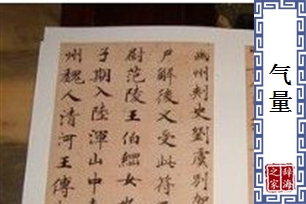 幽州刺史劉虞別
尸解後又受此符
尉范陵王伯 女
子期入陸渾山中
州魏人清河王傅
气量
辞海
之家